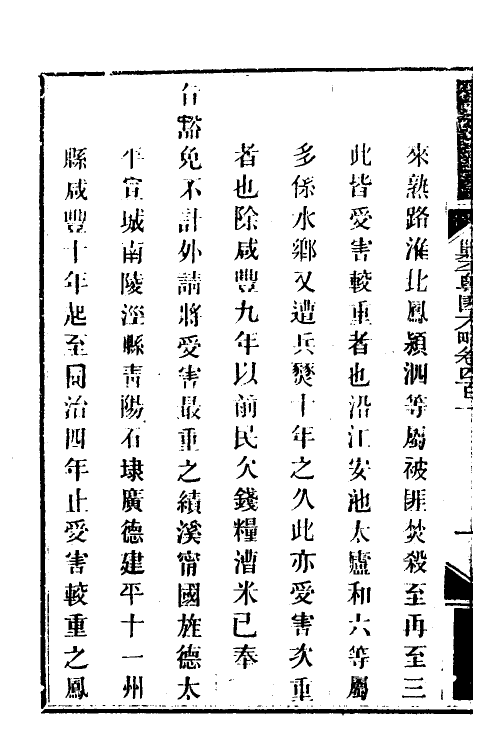 卷四百一
來熟路淮北鳳潁泗等屬被匪焚殺至再至三
此皆受害較重者也沿江安池太廬和六等屬
多係水鄉又遭兵燹十年之久此亦受害次重
者也除咸豐九年以前民欠錢糧漕米已奉
旨豁免不計外請將受害最重之績溪甯國旌德太
平宣城南陵涇縣靑陽石埭廣德建平十一州
縣咸豐十年起至同治四年止受害較重之鳳